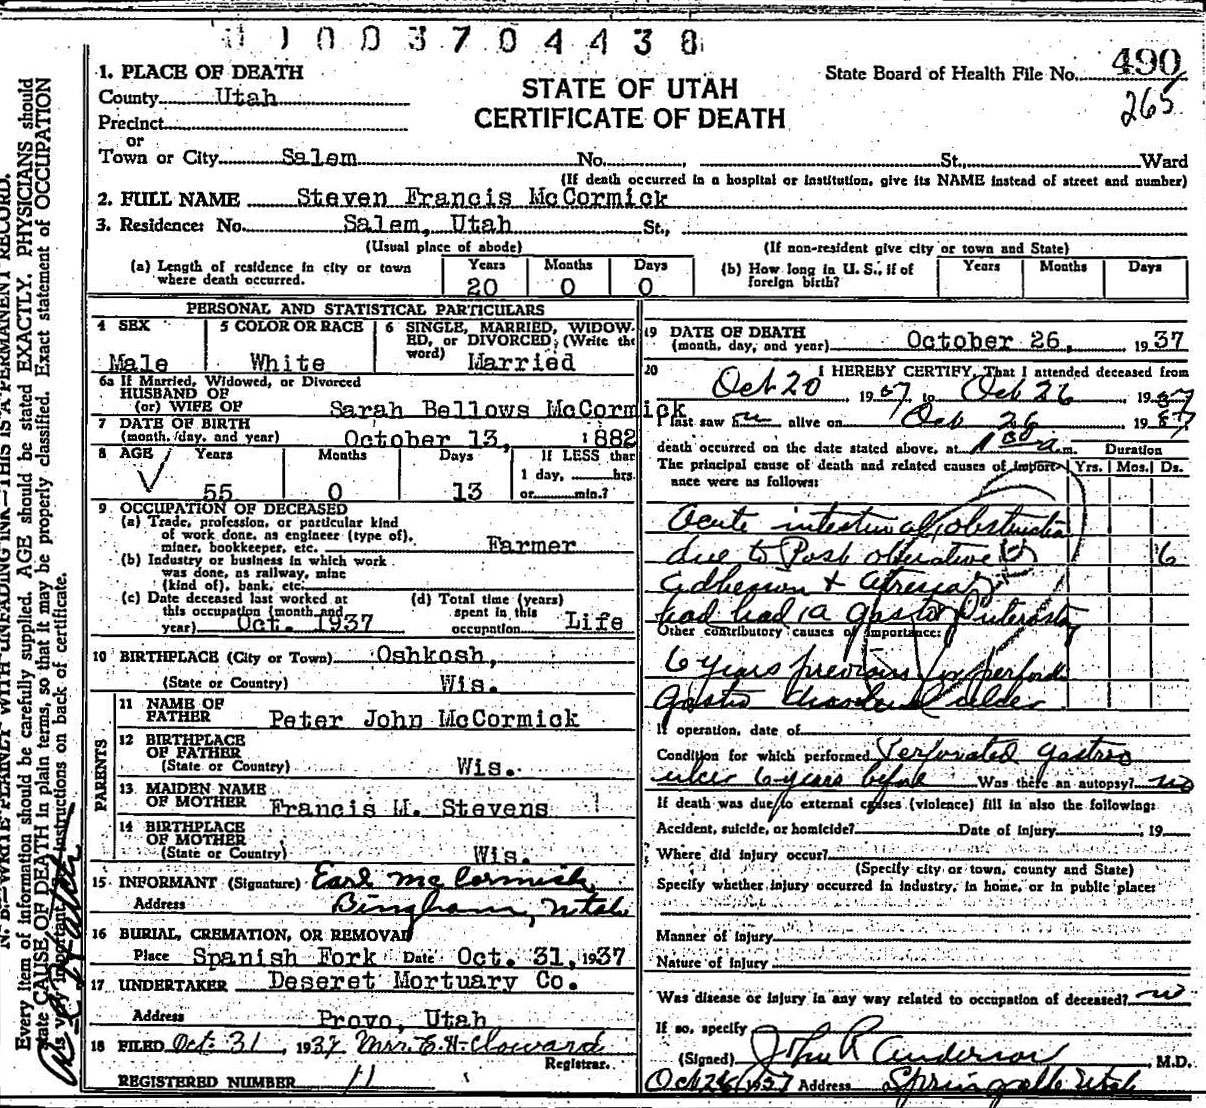 1003704438
1. PLACE OF DEATH
STATE OF UTAH
CERTIFICATE OF DEATH
State Board of Health File No. 490
265
County Utah
Precinct
or
Town or City Salem No. , St. Ward
(If death occurred in a hospital or institution, give its NAME instead of street and number)
2. FULL NAME Steven Francis McCormick
3. Residence: No. Salem, Utah St.,
(Usual place of abode) (If non-resident give city or town and State)
(a) Length of residence in city or town where death occurred. Years 20 Months 0 Days 0
(b) How long in U. S., if of foreign birth? Years Months Days
PERSONAL AND STATISTICAL PARTICULARS
4 SEX Male
5 COLOR OR RACE White
6 SINGLE, MARRIED, WIDOWED, or DIVORCED; (Write the word) Married
6a If Married, Widowed, or Divorced
HUSBAND OF
(or) WIFE OF Sarah Bellows McCormick
7 DATE OF BIRTH
(month, day, and year) October 13, 1882
8 AGE Years 55 Months 0 Days 13 If LESS than 1 day, hrs. or min.?
9 OCCUPATION OF DECEASED
(a) Trade, profession, or particular kind
of work done, as engineer (type of),
miner, bookkeeper, etc. Farmer
(b) Industry or business in which work
was done, as railway, mine
(kind of), bank, etc.
(c) Date deceased last worked at
this occupation (month and
year) Oct. 1937
(d) Total time (years)
spent in this
occupation Life
10 BIRTHPLACE (City or Town) Oshkosh,
(State or Country) Wis.
PARENTS
11 NAME OF
FATHER Peter John McCormick
12 BIRTHPLACE
OF FATHER
(State or Country) Wis.
13 MAIDEN NAME
OF MOTHER Francis M. Stevens
14 BIRTHPLACE
OF MOTHER
(State or Country) Wis.
15 INFORMANT (Signature) Earl McCormick
Address Bingham, Utah
16 BURIAL, CREMATION, OR REMOVAL
Place Spanish Fork Date Oct. 31, 1937
17 UNDERTAKER Deseret Mortuary Co.
Address Provo, Utah
18 FILED Oct 31, 1937 Mrs. E. H. Cloward
Registrar.
REGISTERED NUMBER 11
19 DATE OF DEATH
(month, day, and year) October 26, 1937
20 I HEREBY CERTIFY, That I attended deceased from
Oct 20 1937 to Oct 26 1937
I last saw alive on Oct 26 1937
death occurred on the date stated above, at 1 30 a. m. Duration
The principal cause of death and related causes of import- Yrs. Mos. Ds.
ance were as follows:
Acute intestinal obstruction
due to Post operative 6
adhesion + atresia
had had a gastro enterostomy
Other contributory causes of importance:
6 years previous for perforated
gastro duodenal ulcer
If operation, date of
Condition for which performed Perforated gastric
ulcer 6 years before Was there an autopsy? no
If death was due to external causes (violence) fill in also the following:
Accident, suicide, or homicide? Date of injury , 19
Where did injury occur?
(Specify city or town, county and State)
Specify whether injury occurred in industry, in home, or in public place:
Manner of injury
Nature of injury
Was disease or injury in any way related to occupation of deceased? no
If so, specify
(Signed) John R Anderson M.D.
Oct 26 1937 Address Springville Utah
N. B.—WRITE PLAINLY WITH UNFADING INK—THIS IS A PERMANENT RECORD.
Every item of information should be carefully supplied. AGE should be stated EXACTLY. PHYSICIANS should
state CAUSE OF DEATH in plain terms, so that it may be properly classified. Exact statement of OCCUPATION
is very important. instructions on back of certificate.